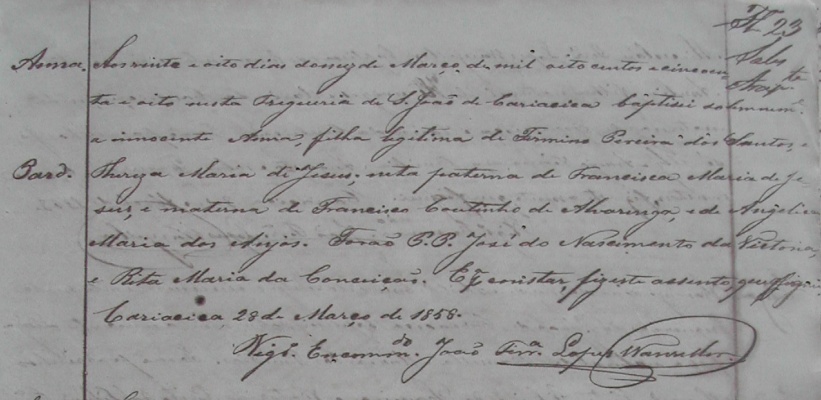 Fl 23
Anna. Aos vinte e oito dias do mez de Março de mil oito centos e cincoen
ta e oito nesta Freguezia de S. João de Cariacica baptisei solemnem.e
a innocente Anna, filha legitima de Firmino Pereira dos Santos, e
Pard. Thereza Maria de Jesus; neta paterna de Francisca Maria de Je-
sus, e materna de Francisco Coutinho de Alvaringa, e de Angelica
Maria dos Anjos. Forão P.P. José do Nascimento da Victoria,
e Rita Maria da Conceição. E p.a constar, fiz este assento, que assig
Cariacica 28 de Março de 1858.
Vigr.o Encommd.do João Ferr.a Lopes Wanzeller.